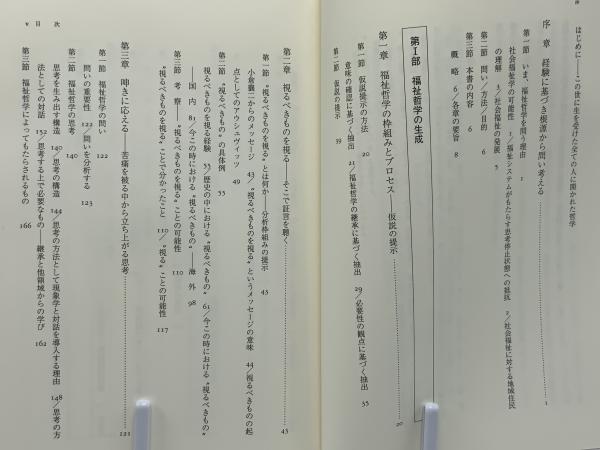 はじめに——この世に生を受けた全ての人に開かれた哲学
序 章 経験に基づき根源から問い考える 1
第一節 いま、福祉哲学を問う理由 1
社会福祉学の可能性 1／福祉システムがもたらす思考停止状態への抵抗 2／社会福祉に対する地域住民
の理解 3／社会福祉の発展 5
第二節 問い／方法／目的 6
第三節 本書の内容 6
概 略 6／各章の要旨 8
第Ⅰ部 福祉哲学の生成
第一章 福祉哲学の枠組みとプロセス——仮説の提示 20
第一節 仮説提示の方法 20
意味の確認に基づく抽出 21／福祉哲学の継承に基づく抽出 29／必要性の観点に基づく抽出 35
第二節 仮説の提示 39
第二章 視るべきものを視る——そこで証言を聴く 43
第一節 “視るべきものを視る”とは何か——分析枠組みの提示 43
小倉襄二からのメッセージ 43／“視るべきものを視る”というメッセージの意味 44／視るべきものの起
点としてのアウシュヴィッツ 49
第二節 “視るべきもの”の具体例 53
視るべきものを視る経験 53／歴史の中における“視るべきもの” 61／今この時における“視るべきもの”
——国 内 81／今この時における“視るべきもの”——海 外 98
第三節 考 察——“視るべきものを視る”ことの可能性 110
“視るべきものを視る”ことで分かったこと 110／“視る”ことの可能性 117
第三章 呻きに応える——苦痛を被る中から立ち上がる思考 121
第一節 福祉哲学の問い 122
問いの重要性 122／問いを分析する 123
第二節 福祉哲学の思考 140
思考を生み出す構造 140／思考の構造 144／思考の方法として現象学と対話を導入する理由 148／思考の方
法としての対話 152／思考する上で必要なもの——継承と他領域からの学び 162
第三節 福祉哲学によってもたらされるもの 166
v 目 次